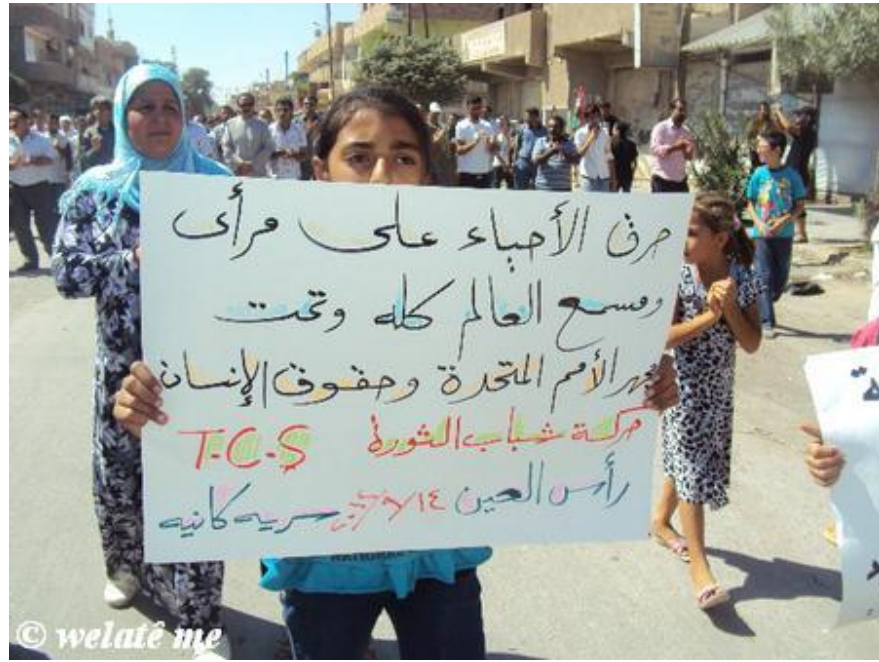 حرق الأحياء على مرأى
ومسمع العالم كله وتحت
مجهر الأمم المتحدة وحقوق الإنسان
حركة شباب الثورة T.C.S
رأس العين ١٤ سريه كانيه
NATIONAL
© welatê me